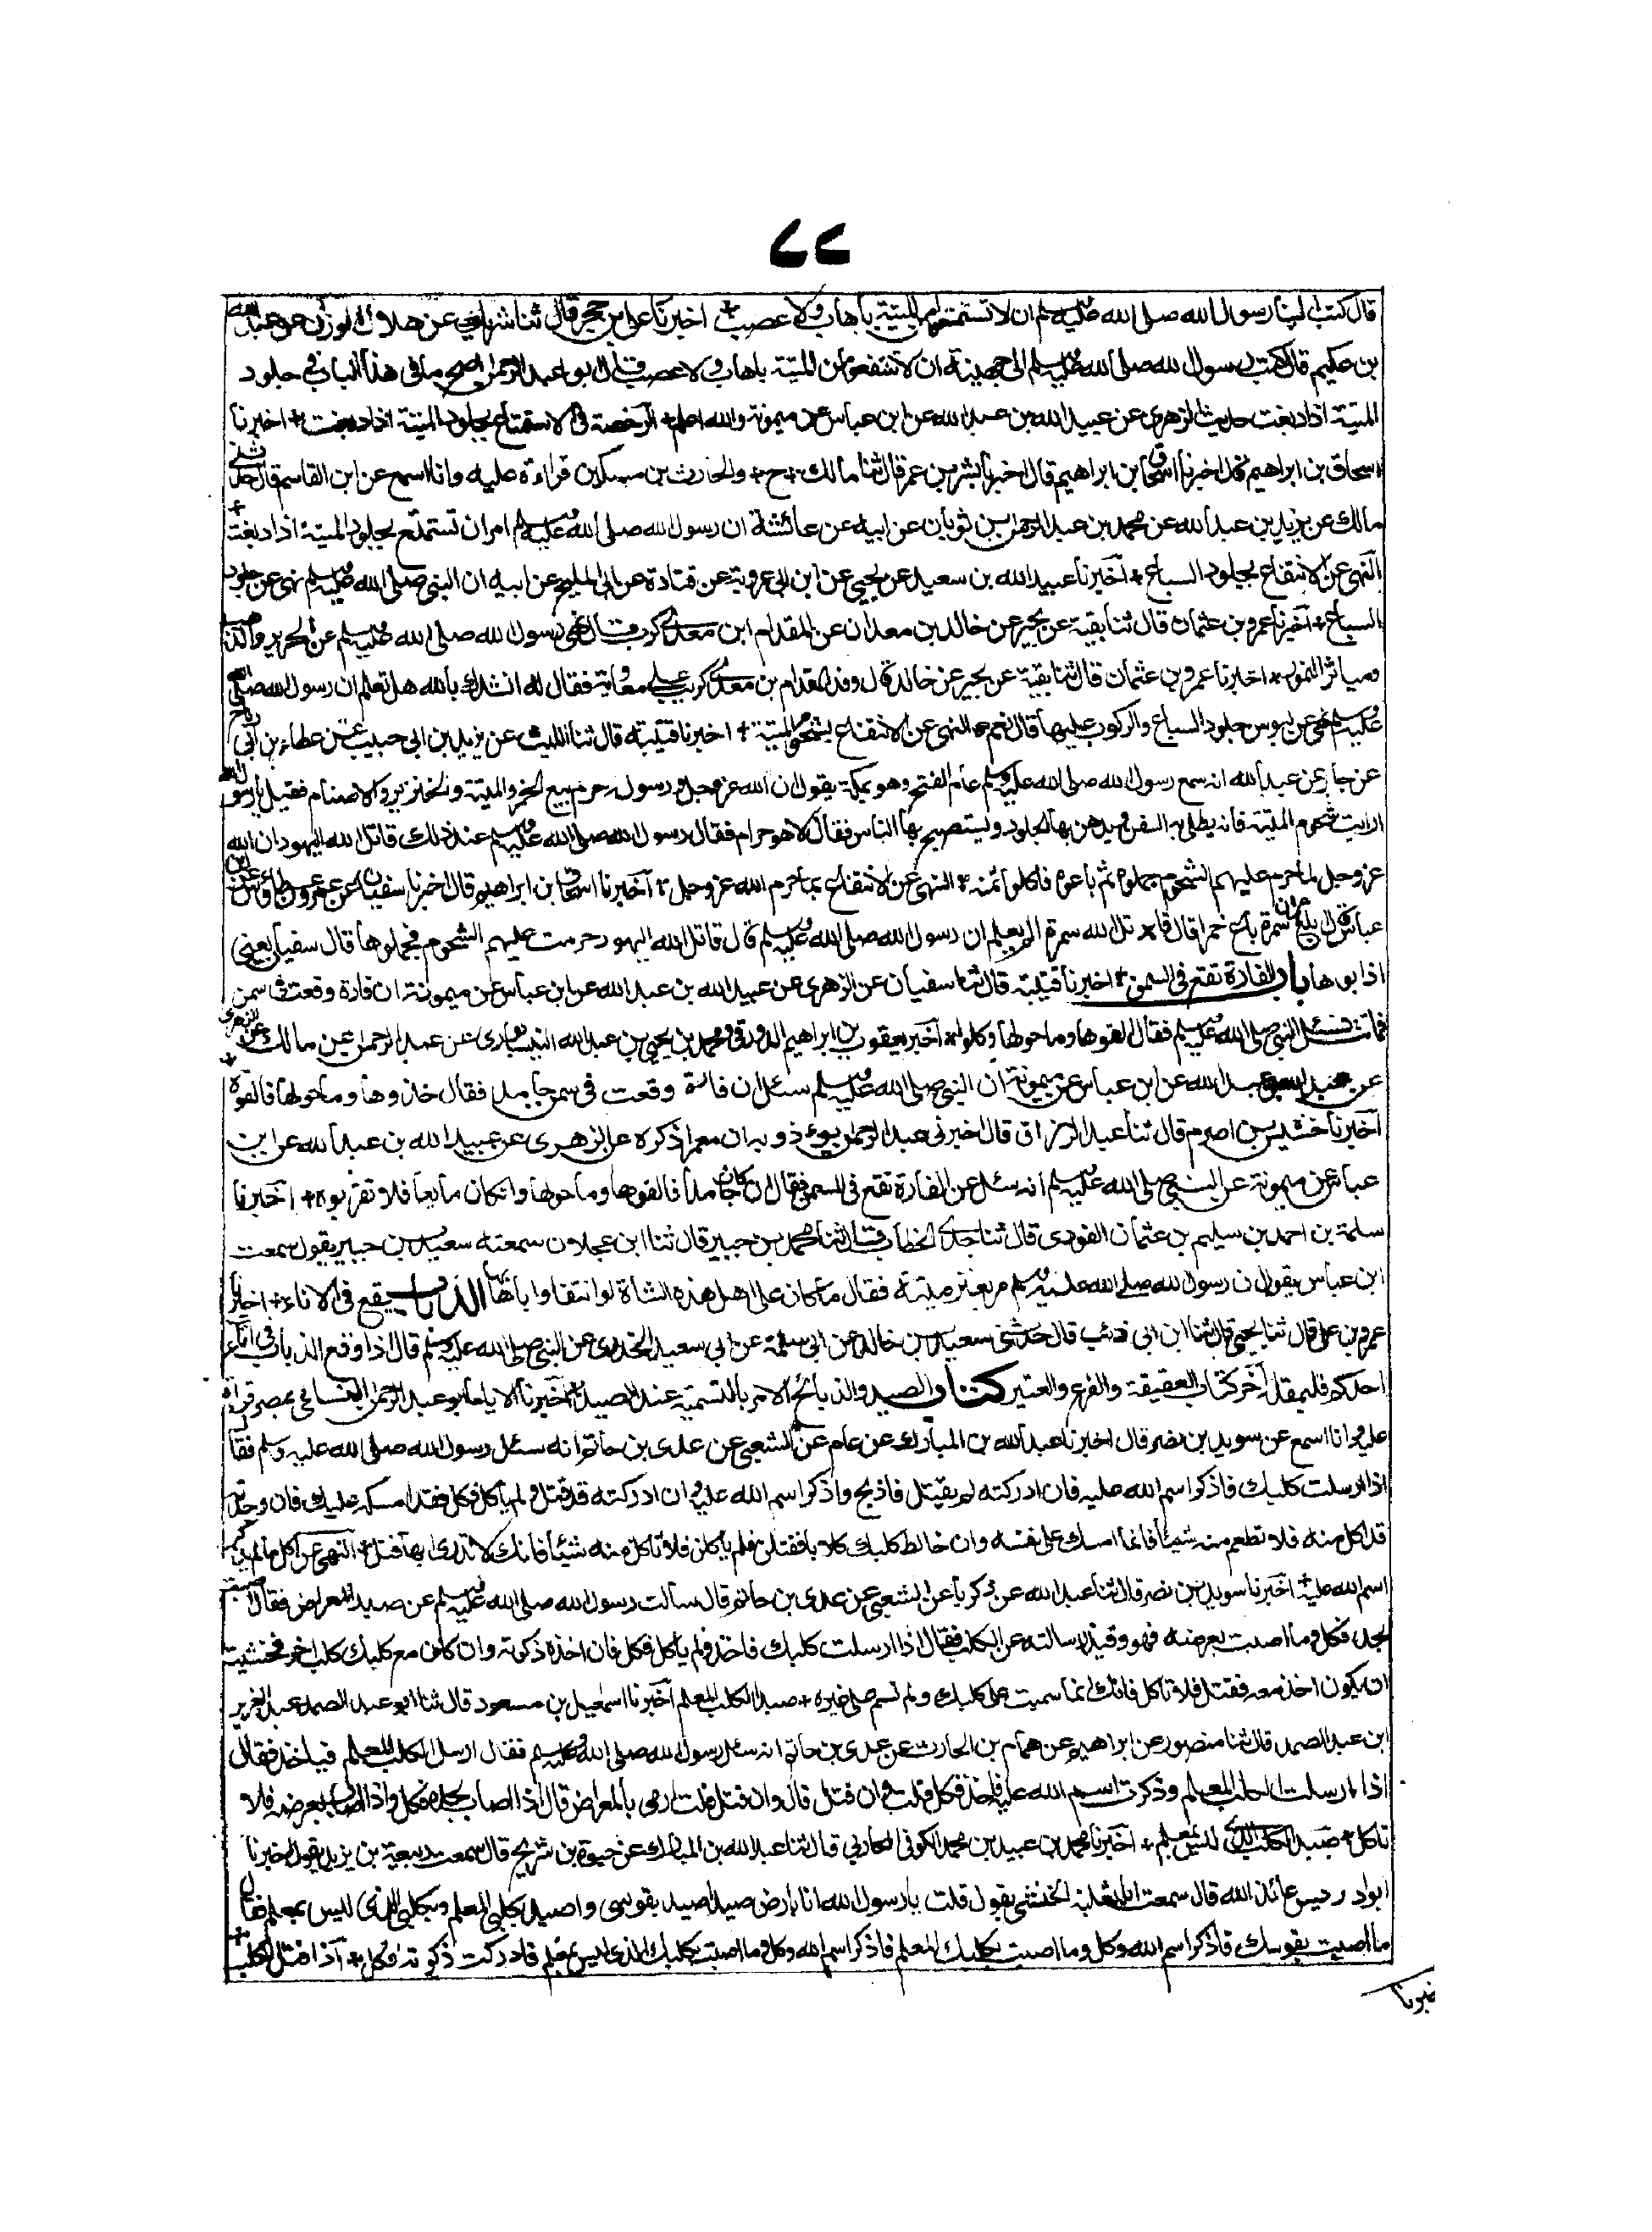 ٧٧
قال كتب الينا رسول الله صلى الله عليه وسلم ان لا تستمتعوا من الميتة باهاب ولا عصب + اخبرنا على بن حجر قال ثنا شريك عن هلال الوزان عن عبد الله
بن عكيم قال كتب رسول الله صلى الله عليه وسلم الى جهينة ان لا تنتفعوا من الميتة باهاب ولا عصب قال ابو عبد الرحمن اصح ما فى هذا الباب فى جلود
الميتة اذا دبغت حديث الزهرى عن عبيد الله بن عبد الله عن ابن عباس عن ميمونة والله اعلم + الرخصة فى الاستمتاع بجلود الميتة اذا دبغت + اخبرنا
اسحاق بن ابراهيم قال اخبرنا اسحاق بن ابراهيم قال اخبرنا بشر بن عمر قال ثنا مالك + ح + والحارث بن مسكين قراءة عليه وانا اسمع عن ابن القاسم قال حدثنى
مالك عن يزيد بن عبد الله عن محمد بن عبد الرحمن بن ثوبان عن ابيه عن عائشة ان رسول الله صلى الله عليه وسلم امر ان تستمتع بجلود الميتة اذا دبغت +
النهى عن الانتفاع بجلود السباع + اخبرنا عبيد الله بن سعيد عن يحيى عن ابن ابى عروبة عن قتادة عن ابى المليح عن ابيه ان النبى صلى الله عليه وسلم نهى عن جلود
السباع + اخبرنا عمرو بن عثمان قال ثنا بقية عن بحير عن خالد بن معدان عن المقدام ابن معدى كرب قال نهى رسول الله صلى الله عليه وسلم عن الحرير والذهب
ومياثر النمور + اخبرنا عمرو بن عثمان قال ثنا بقية عن بحير عن خالد قال وفد المقدام بن معدى كرب على معاوية فقال له انشدك بالله هل تعلم ان رسول الله صلى الله
عليه وسلم نهى عن لبوس جلود السباع والركوب عليها قال نعم + النهى عن الانتفاع بشحوم الميتة + اخبرنا قتيبة قال ثنا الليث عن يزيد بن ابى حبيب عن عطاء بن ابى رباح
عن جابر بن عبد الله انه سمع رسول الله صلى الله عليه وسلم عام الفتح وهو بمكة يقول ان الله عز وجل ورسوله حرم بيع الخمر والميتة والخنزير والاصنام فقيل يا رسول الله
ارايت شحوم الميتة فانه يطلى به السفن ويدهن بها الجلود ويستصبح بها الناس فقال لا هو حرام فقال رسول الله صلى الله عليه وسلم عند ذلك قاتل الله اليهود ان الله
عز وجل لما حرم عليهم الشحوم جملوه ثم باعوه فاكلوا ثمنه + النهى عن الانتفاع بما حرم الله عز وجل + اخبرنا اسحاق بن ابراهيم قال اخبرنا سفيان عن عمرو عن طاؤس عن ابن
عباس قال بلغ عمر ان سمرة باع خمرا قال قاتل الله سمرة الم يعلم ان رسول الله صلى الله عليه وسلم قال قاتل الله اليهود حرمت عليهم الشحوم فجملوها قال سفيان يعنى
اذابوها باب الفارة تقع فى السمن + اخبرنا قتيبة قال ثنا سفيان عن الزهرى عن عبيد الله بن عبد الله عن ابن عباس عن ميمونة ان فارة وقعت فى سمن
فماتت فسئل النبى صلى الله عليه وسلم فقال القوها وما حولها وكلوا + اخبرنا يعقوب بن ابراهيم الدورقى ومحمد بن يحيى بن عبد الله النيسابورى عن عبد الرحمن عن مالك عن الزهرى
عن عبيد الله بن عبد الله عن ابن عباس عن ميمونة ان النبى صلى الله عليه وسلم سئل ان فارة وقعت فى سمن جامد فقال خذوها وما حولها فالقوه +
اخبرنا خشيش بن اصرم قال ثنا عبد الرزاق قال اخبرنى عبد الرحمن بن بوذويه ان معمرا ذكره عن الزهرى عن عبيد الله بن عبد الله عن ابن
عباس عن ميمونة عن النبى صلى الله عليه وسلم انه سئل عن الفارة تقع فى السمن فقال ان كان جامدا فالقوها وما حولها وان كان مايعا فلا تقربوه + اخبرنا
سلمة بن احمد بن سليم بن عثمان الفوزى قال ثنا جدى الخطاب قال ثنا محمد بن حمير قال ثنا ابن عجلان سمعته سعيد بن جبير يقول سمعت
ابن عباس يقول ان رسول الله صلى الله عليه وسلم مر بعنز ميتة فقال ما كان على اهل هذه الشاة لو انتفعوا باهابها الذباب يقع فى الاناء + اخبرنا
عمرو بن على قال ثنا يحيى قال ثنا ابن ابى ذئب قال حدثنى سعيد بن خالد عن ابى سلمة عن ابى سعيد الخدرى عن النبى صلى الله عليه وسلم قال اذا وقع الذباب فى اناء
احدكم فليمقله آخر كتاب العقيقة والفرع والعتيرة كتاب الصيد والذبائح الامر بالتسمية عند الصيد + اخبرنا الامام ابو عبد الرحمن النسائى بمصر قراءة
عليه وانا اسمع عن سويد بن نصر قال اخبرنا عبد الله بن المبارك عن عاصم عن الشعبى عن عدى بن حاتم انه سئل رسول الله صلى الله عليه وسلم فقال
اذا ارسلت كلبك فاذكر اسم الله عليه فان ادركته لم يقتل فاذبح واذكر اسم الله عليه وان ادركته قد قتل ولم ياكل فكل فقد امسكه عليك فان وجدته
قد اكل منه فلا تطعم منه شيئا فانما امسك على نفسه وان خالط كلبك كلابا فقتلن فلم ياكلن فلا تاكل منه شيئا فانك لا تدرى ايها قتل + النهى عن اكل ما لم يذكر
اسم الله عليه + اخبرنا سويد بن نصر قال ثنا عبد الله عن زكريا عن الشعبى عن عدى بن حاتم قال سالت رسول الله صلى الله عليه وسلم عن صيد المعراض فقال ما اصبت
بحده فكل وما اصبت بعرضه فهو وقيذ وسالته عن الكلب فقال اذا ارسلت كلبك فاخذ ولم ياكل فكل فان اخذه ذكوته وان كان مع كلبك كلب اخر فخشيت
ان يكون اخذ معه فقتل فلا تاكل فانك انما سميت على كلبك ولم تسم على غيره + صيد الكلب المعلم اخبرنا اسمعيل بن مسعود قال ثنا ابو عبد الصمد عبد العزيز
ابن عبد الصمد قال ثنا منصور عن ابراهيم عن همام بن الحارث عن عدى بن حاتم انه سئل رسول الله صلى الله عليه وسلم فقال ارسل الكلب المعلم فياخذ فقال
اذا ارسلت الكلب المعلم وذكرت اسم الله عليه فاخذ فكل قلت وان قتل قال وان قتل قلت ارمى بالمعراض قال اذا اصاب بحده فكل واذا اصاب بعرضه فلا
تاكل + صيد الكلب الذى ليس بمعلم + اخبرنا محمد بن عبيد بن محمد الكوفى المحاربى قال ثنا عبد الله بن المبارك عن حيوة بن شريح قال سمعت ربيعة بن يزيد يقول اخبرنا
ابو ادريس عائذ الله قال سمعت ابا ثعلبة الخشنى يقول قلت يا رسول الله انا بارض صيد اصيد بقوسى واصيد بكلبى المعلم وبكلبى الذى ليس بمعلم فقال
ما اصبت بقوسك فاذكر اسم الله وكل وما اصبت بكلبك المعلم فاذكر اسم الله وكل وما اصبت بكلبك الذى ليس بمعلم فادركت ذكوته فكل + اذا قتل الكلب +